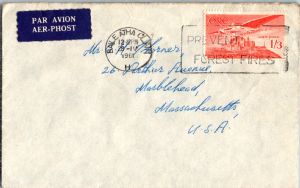 PAR AVION
AER-PHOST
BAILE ÁTHA CLIATH
1961
PREVENT
FOREST FIRES
1/3
Horner,
26 Arthur Avenue,
Marblehead,
Massachusetts,
U.S.A.